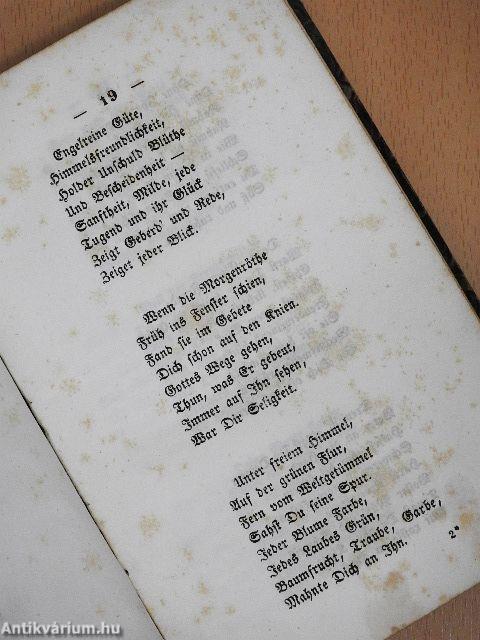 — 19 —
Engelreine Güte,
Himmelsfreundlichkeit,
Holder Unschuld Blüthe
Und Bescheidenheit —
Sanftheit, Milde, jede
Tugend und ihr Glück
Zeigt Geberd' und Rede,
Zeiget jeder Blick.
Wenn die Morgenröthe
Früh ins Fenster schien,
Fand sie im Gebete
Dich schon auf den Knien.
Gottes Wege gehen,
Thun, was Er gebeut,
Immer auf Ihn sehen,
War Dir Seligkeit.
Unter freiem Himmel,
Auf der grünen Flur,
Fern vom Weltgetümmel
Sahst Du seine Spur.
Jeder Blume Farbe,
Jedes Laubes Grün,
Baumfrucht, Traube, Garbe,
Mahnte Dich an Ihn.
2*
Antikvárium.hu